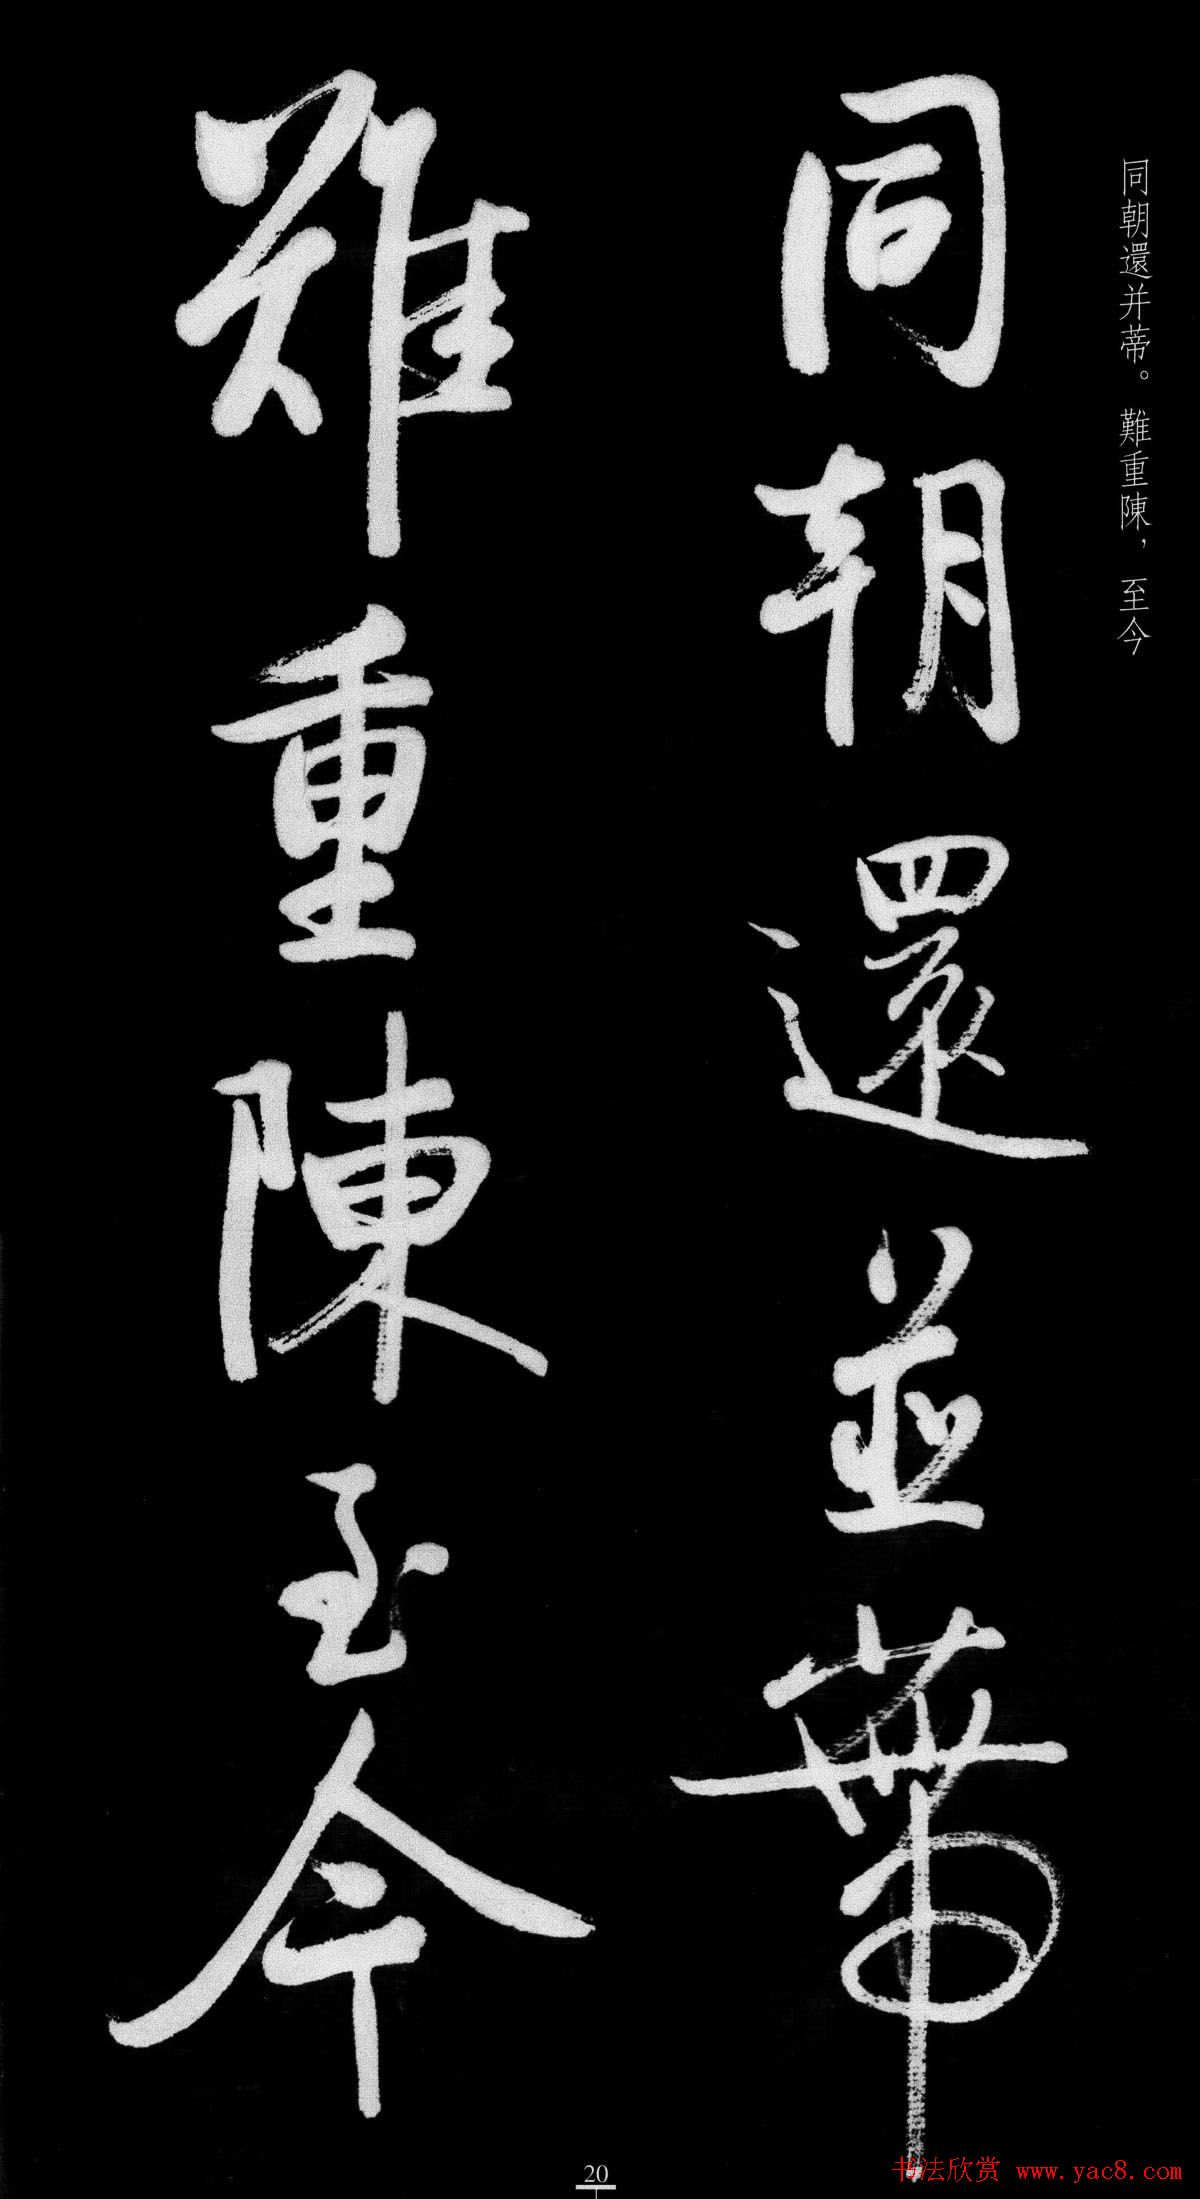 同朝還并蒂。難重陳，至今
同朝還並蔕
難重陳至今
20
书法欣赏 www.yac8.com